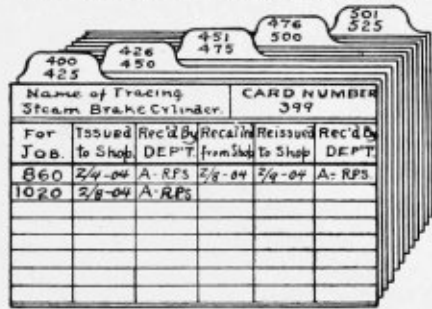 501
525
476
500
451
475
426
450
400
425
Name of Tracing
Steam Brake Cylinder.
CARD NUMBER
399
For Job. Issued to Shop. Rec'd By DEP'T. Recal'in from Shop Reissued to Shop. Rec'd By DEPT.
860 2/4-04 A-RPS 2/8-04 2/9-04 A-RPS.
1020 2/8-04 A-RPS